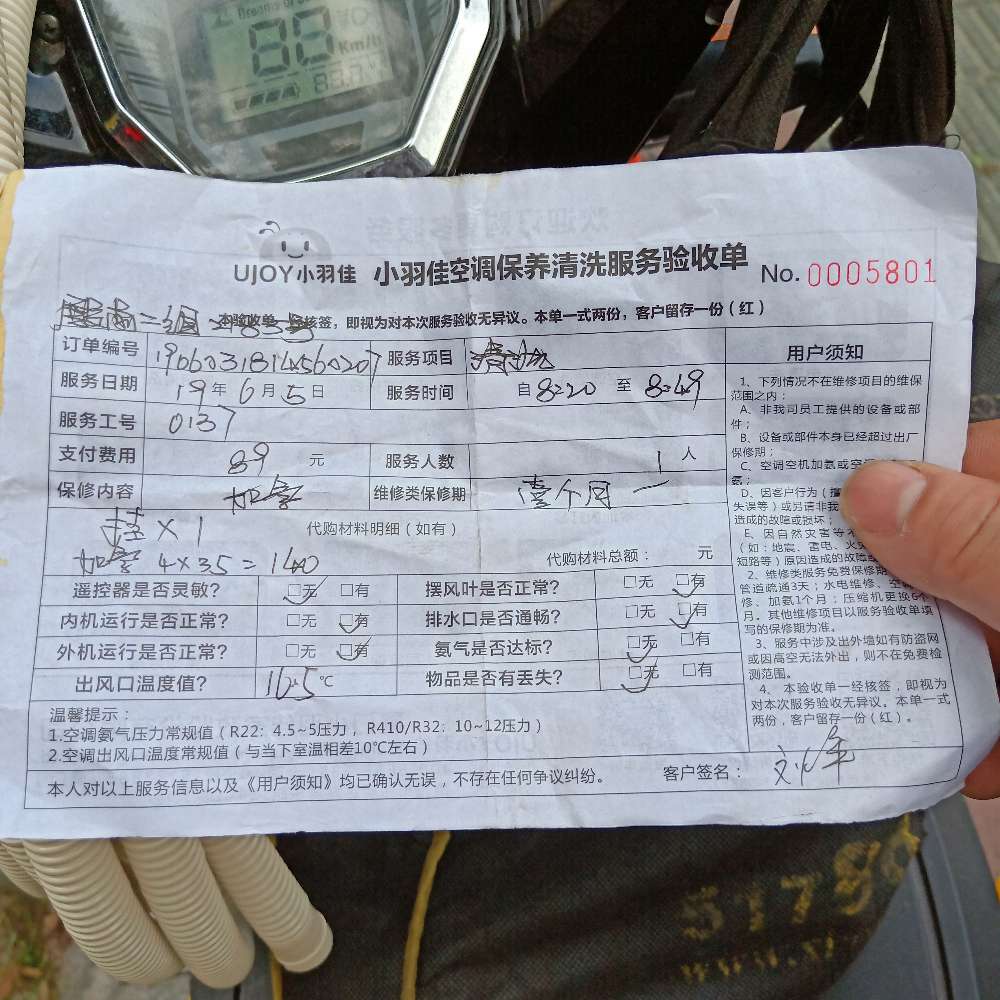 88
Km/h
UJOY小羽佳 小羽佳空调保养清洗服务验收单 No. 0005801
本验收单一经核签，即视为对本次服务验收无异议。本单一式两份，客户留存一份（红）
订单编号 服务项目 清洗
服务日期 19年6月5日 服务时间 自8:20至8:49
服务工号 0137
支付费用 89元 服务人数 1人
保修内容 加氨 维修类保修期 壹个月
挂×1 代购材料明细（如有）
4×35=140 代购材料总额： 元
遥控器是否灵敏? □无 □有 摆风叶是否正常? □无 □有
内机运行是否正常? □无 □有 排水口是否通畅? □无 □有
外机运行是否正常? □无 □有 氨气是否达标? □无 □有
出风口温度值? 16.5℃ 物品是否有丢失? □无 □有
温馨提示：
1.空调氨气压力常规值（R22: 4.5~5压力，R410/R32: 10~12压力）
2.空调出风口温度常规值（与当下室温相差10℃左右）
本人对以上服务信息以及《用户须知》均已确认无误，不存在任何争议纠纷。 客户签名：
用户须知
1、下列情况不在维修项目的维保
范围之内：
A、非我司员工提供的设备或部
件；
B、设备或部件本身已经超过出厂
保修期；
C、空调空机加氨或空
氨；
D、因客户行为（
失误等）或另请非我
造成的故障或损坏；
E、因自然灾害等不
（如：地震、雷电、火
短路等）原因造成的故障
2、维修类服务免费保修期
管道疏通3天；水电维修、空
修、加氨1个月；压缩机更换6个
月。其他维修项目以服务验收单填
写的保修期为准。
3、服务中涉及出外墙如有防盗网
或因高空无法外出，则不在免费检
测范围。
4、本验收单一经核签，即视为
对本次服务验收无异议。本单一式
两份，客户留存一份（红）。